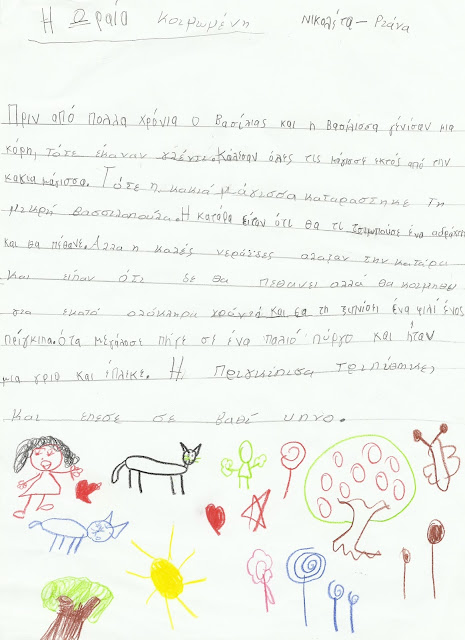 Η Ωραία Κοιμωμένη Νικολέτα - Ρτάνα
Πριν από πολλα χρόνια ο Βασίλιας και η Βασίλισσα γένισαν μια
κόρη, τότε έκαναν γλέντι. Κάλεσαν όλες τις μάγισσε εκτός από την
κακια μάγισσα. Τότε η κακιά μάγισσα καταράστηκε τη
μικρή βασσιλοπούλα. Η κατάρα είταν ότι θα τι τσιμπούσε ένα αδράχτι
και θα πέθανε. Αλλα η καλές νεράιδες αλαξαν την κατάρα
και είπαν ότι δε θα πεθάνει αλλά θα κοιμηθει
για εκατό ολόκληρα χρόνια και θα τη ξιπνίσει ένα φιλί ένος
πρίγκιπα. ότα μεγάλοσε πήγε σε ένα παλιό πύργο και ήταν
μια γρια και έπλεκε. Η Πριγκίπισα τριπύθηκε,
και επεσε σε βαθί υπνο.